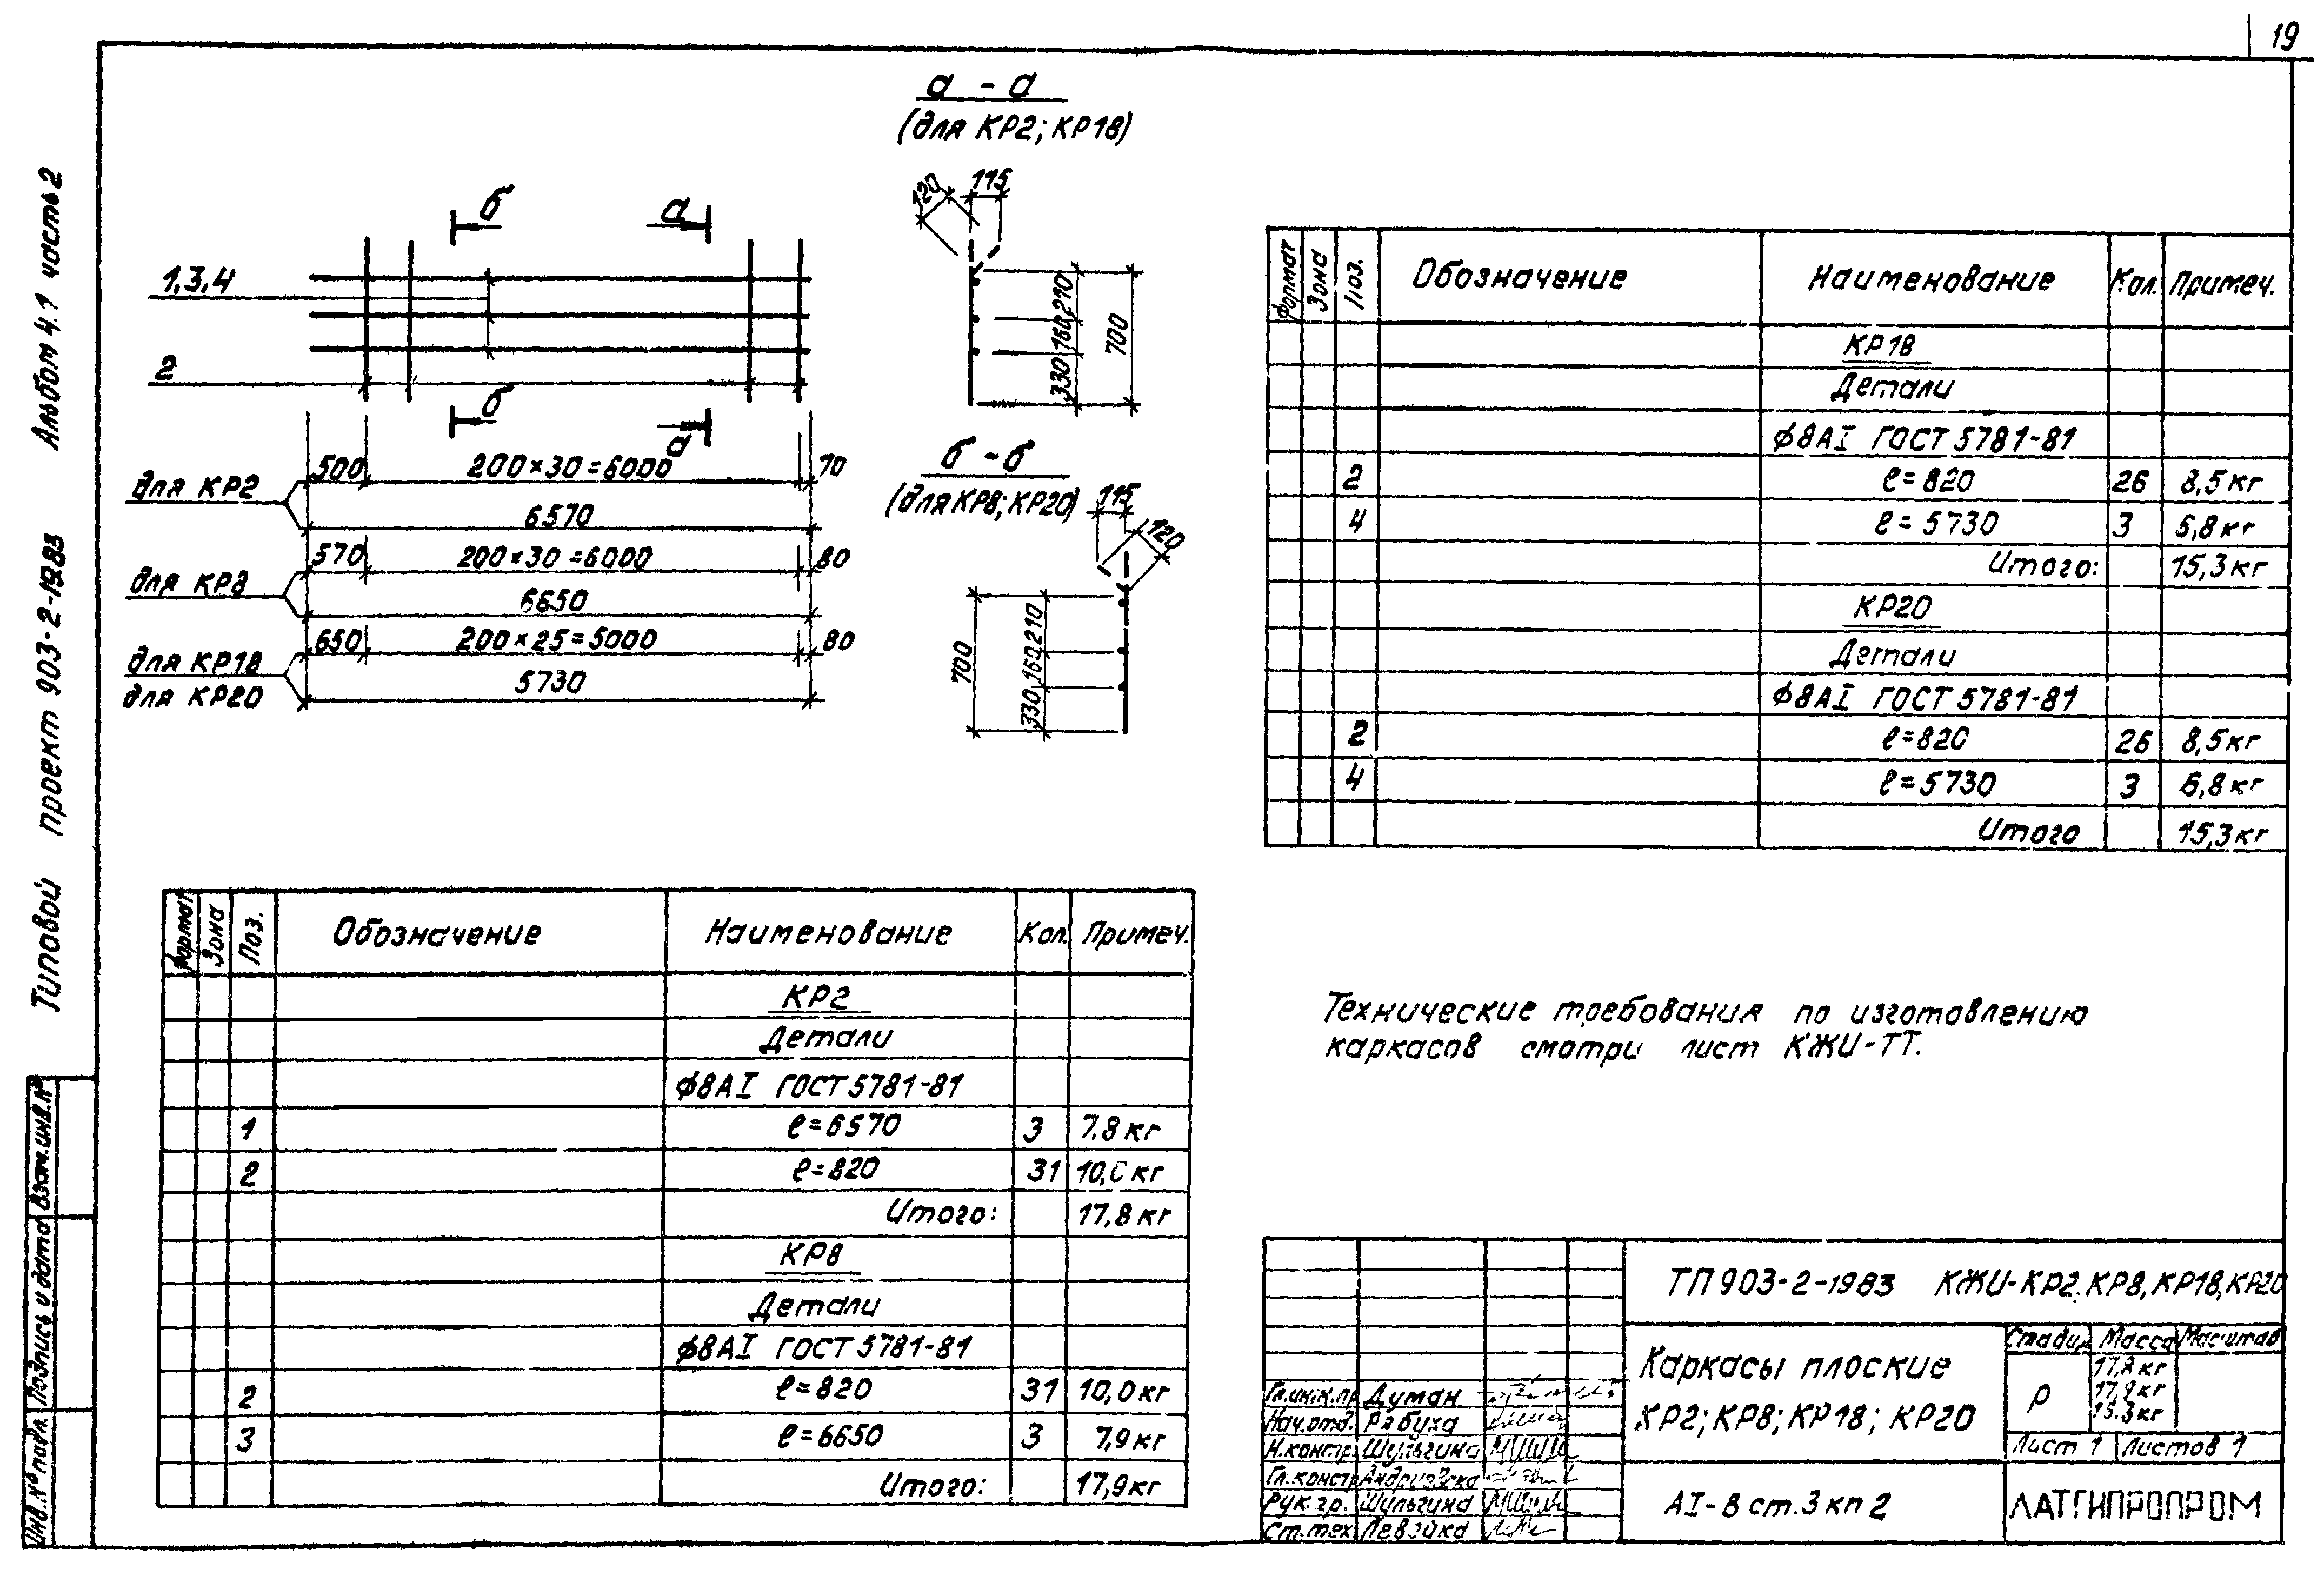 19
Типовой проект 903-2-1983 Альбом 4.1 часть 2
а - а
(для КР2; КР18)
120
115
210
160
330
700
б
а
1,3,4
2
б
а
для КР2
500
200×30=6000
70
6570
для КР8
570
200×30=6000
80
6650
для КР18
для КР20
650
200×25=5000
80
5730
б - б
(для КР8; КР20)
115
120
210
160
330
700
Формат Зона Поз. Обозначение Наименование Кол. Примеч.
КР18
Детали
ϕ8АI ГОСТ 5781-81
2 ℓ=820 26 8,5кг
4 ℓ=5730 3 5,8кг
Итого: 15,3кг
КР20
Детали
ϕ8АI ГОСТ 5781-81
2 ℓ=820 26 8,5кг
4 ℓ=5730 3 6,8кг
Итого 15,3кг
Формат Зона Поз. Обозначение Наименование Кол. Примеч.
КР2
Детали
ϕ8АI ГОСТ 5781-81
1 ℓ=6570 3 7.8кг
2 ℓ=820 31 10,0кг
Итого: 17,8кг
КР8
Детали
ϕ8АI ГОСТ 5781-81
2 ℓ=820 31 10,0кг
3 ℓ=6650 3 7,9кг
Итого: 17,9кг
Технические требования по изготовлению
каркасов смотри лист КЖИ-ТТ.
Инв.№подл. Подпись и дата Взам.инв.№
ТП 903-2-1983 КЖИ-КР2, КР8, КР18, КР20
Каркасы плоские
КР2; КР8; КР18; КР20
Стадия Масса Масштаб
Р
17,8кг
17,9кг
15.3кг
Лист 1 Листов 1
АI-В ст.3 кп 2
ЛАТГИПРОПРОМ
Гл.инж.пр Думан
Нач.отд. Рабуха
Н.контр. Шульгина
Гл.констр
Рук.гр. Шульгина
Ст.тех. Левэйка